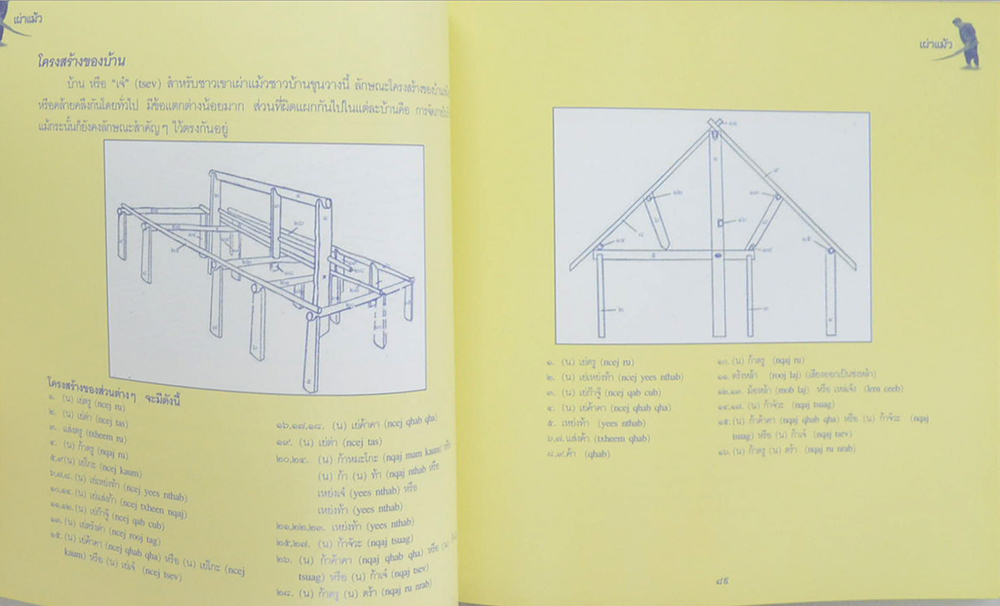 เผ่าแม้ว
โครงสร้างของบ้าน
บ้าน หรือ "เจ๋" (tsev) สำหรับชาวเขาเผ่าแม้วชาวบ้านขุนวางนี้ ลักษณะโครงสร้างของบ้าน
หรือคล้ายคลึงกันโดยทั่วไป มีข้อแตกต่างน้อยมาก ส่วนที่ผิดแผกกันไปในแต่ละบ้านคือ
แม้กระนั้นก็ยังคงลักษณะสำคัญๆ ไว้ตรงกันอยู่
โครงสร้างของส่วนต่างๆ จะมีดังนี้
๑. (น) เย่ดรู (ncej ru)
๒. (น) เย่ต่า (ncej tas)
๓. แส่งดรู (txheem ru)
๔. (น) ก้าดรู (nqaj ru)
๕,๙(น) เย่โกะ (ncej kaum)
๖,๗,๘. (น) เย่เหย่งท้า (ncej yees nthab)
๑๐,๑๔. (น) เย่แส่งก้า (ncej txheen nqaj)
๑๑,๑๒. (น) เย่ก๊าจู๊ (ncej qab cub)
๑๓. (น) เย่ดร้งต๋า (ncej rooj tag)
๑๕. (น) เย่ค้าคา (ncej qhab qha) หรือ (น) เย่โกะ (ncej
kaum) หรือ (น) เย่เจ๋ (ncej tsev)
๑๖,๑๗,๑๘. (น) เย่ค้าคา (ncej qhab qha)
๑๙. (น) เย่ต่า (ncej tas)
๒๐,๒๔. (น) ก้าหมะโกะ (nqaj mam kaum) หรือ
(น) ก้า (น) ท้า (nqaj nthab หรือ
เหย่งเจ๋ (yees nthab) หรือ
เหย่งท้า (yees nthab)
๒๑,๒๒,๒๓. เหย่งท้า (yees nthab)
๒๕,๒๗. (น) ก้าจัวะ (nqaj tsuag)
๒๖. (น) ก้าค้าคา (nqaj qhab qha) หรือ (น)
tsuag) หรือ (น) ก้าเจ๋ (nqaj tsev)
๒๘. (น) ก้าดรู (น) ดร้า (nqaj ru nrab)
เผ่าแม้ว
๑. (น) เย่ดรู (ncej ru)
๒. (น) เย่เหย่งท้า (ncej yees nthab)
๓. (น) เย่ก๊าจู๊ (ncej qab cub)
๔. (น) เย่ค้าคา (ncej qhab qha)
๕. เหย่งท้า (yees nthab)
๖,๗. แส่งค้า (txheem qhab)
๘,๙. ค้า (qhab)
๑๐. (น) ก้าดรู (nqaj ru)
๑๑. ดร้งหล้า (rooj laj) (เสียงออกเป็นซ่งหล้า)
๑๒,๑๓. ม้อหล้า (mob laj) หรือ เหล่เจ้ง (lem ceeb)
๑๔,๑๗. (น) ก้าจัวะ (nqaj tsuag)
๑๕. (น) ก้าค้าคา (nqaj qhab qha) หรือ (น) ก้าจัวะ (nqaj
tsuag) หรือ (น) ก้าเจ๋ (nqaj tsev)
๑๖. (น) ก้าดรู (น) ดร้า (nqaj ru nrab)
๘๕